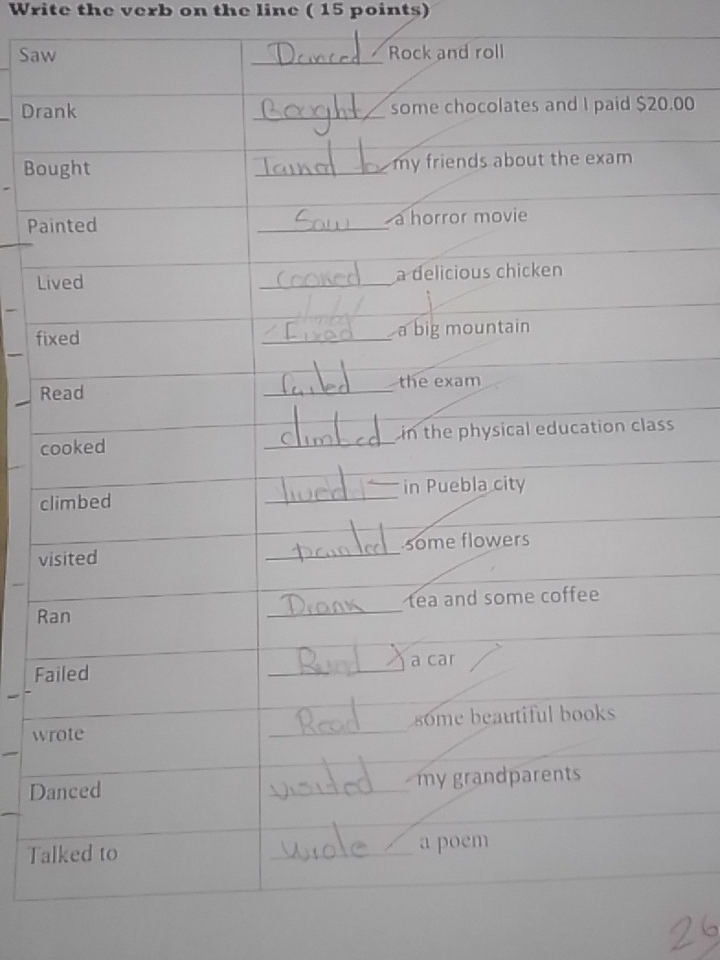 Write the verb on the line ( 15 points)
Saw Danced Rock and roll
Drank Bought some chocolates and I paid $20.00
Bought to my friends about the exam
Painted Saw a horror movie
Lived cooked a delicious chicken
fixed Fixed a big mountain
Read failed the exam
cooked climbed in the physical education class
climbed lived in Puebla city
visited painted some flowers
Ran Drank tea and some coffee
Failed a car
wrote Read some beautiful books
Danced visited my grandparents
Talked to wrote a poem
26